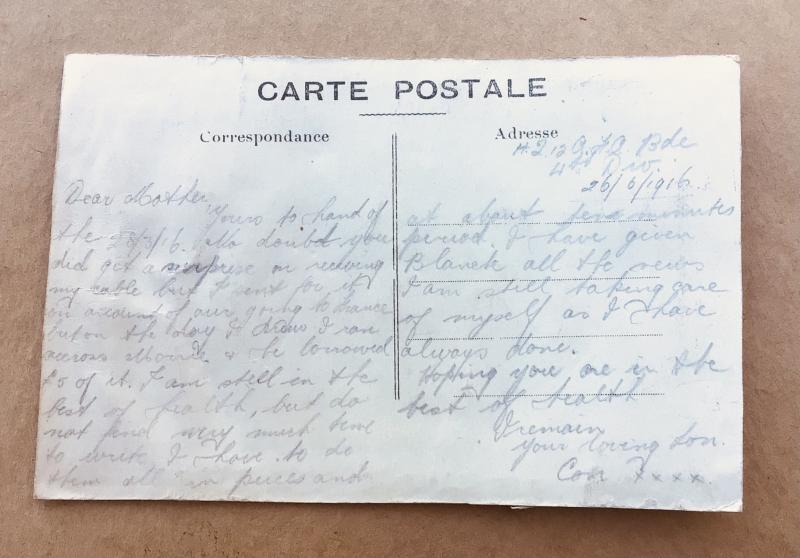 CARTE POSTALE
Correspondance
Adresse
H.Q. 12 A.F.A. Bde
4th Div.
26/6/1916
Dear Mother
Yours to hand of
the 28/3/16. No doubt you
did get a surprise on receiving
my cable but I sent for it
on account of our going to France
but on the day I drew I ran
across & he borrowed
£5 of it. I am still in the
best of health, but do
not find very much time
to write. I have to do
them all in pieces and
at about ten minutes
period. I have given
Blanch all the news
I am still taking care
of myself as I have
always done.
Hoping you are in the
best of health
I remain
your loving Son.
Con xxxx.